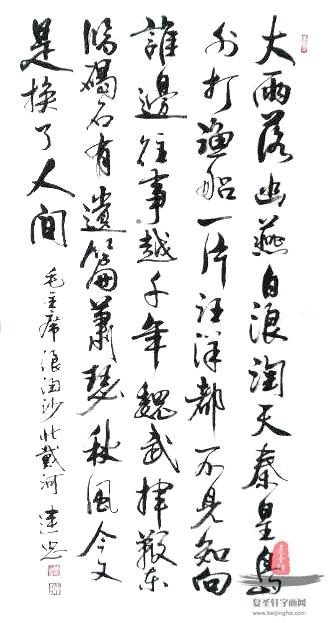 大雨落幽燕白浪淘天秦皇島
外打渔船一片汪洋都不見知向
誰邊往事越千年魏武揮鞭東
临碣石有遺篇蕭瑟秋風今又
是换了人间
毛主席浪淘沙北戴河
复圣轩字画网
www.beijinghx.com